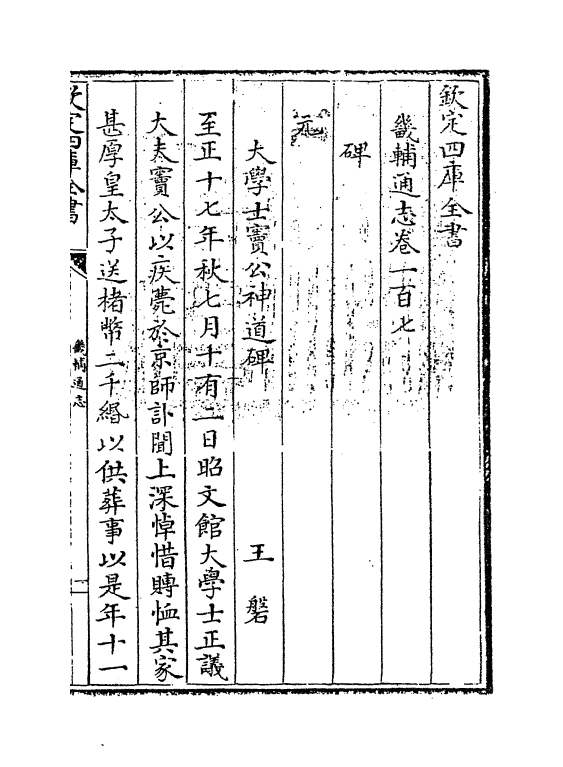 欽定四庫全書
畿輔通志卷一百七
碑
元
大學士竇公神道碑 王磐
至正十七年秋七月十有二日昭文館大學士正議
大夫竇公以疾薨於京師訃聞上深悼惜賻恤其家
甚厚皇太子送楮幣二千緡以供葬事以是年十一
欽定四庫全書
畿輔通志